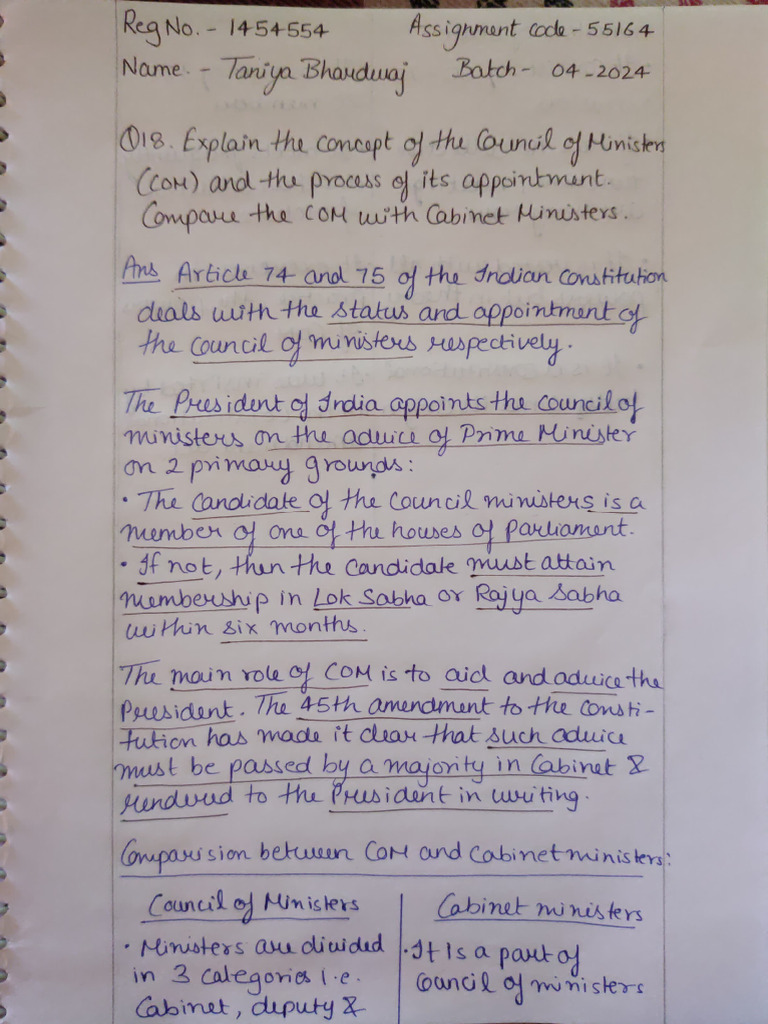 Reg No. - 1454554 Assignment code - 55164
Name. - Taniya Bhardwaj Batch - 04-2024
Q18. Explain the concept of the Council of Ministers
(COM) and the process of its appointment.
Compare the COM with Cabinet Ministers.
Ans Article 74 and 75 of the Indian constitution
deals with the status and appointment of
the council of ministers respectively.
The President of India appoints the council of
ministers on the advice of Prime Minister
on 2 primary grounds:
• The candidate of the council ministers is a
member of one of the houses of parliament.
• If not, then the candidate must attain
membership in Lok Sabha or Rajya Sabha
within six months.
The main role of COM is to aid and advice the
President. The 45th amendment to the consti-
tution has made it clear that such advice
must be passed by a majority in Cabinet &
rendered to the President in writing.
Comparision between COM and Cabinet ministers:
Council of Ministers
• Ministers are divided
in 3 categories i.e.
Cabinet, deputy &
Cabinet ministers
• It Is a part of
Council of ministers